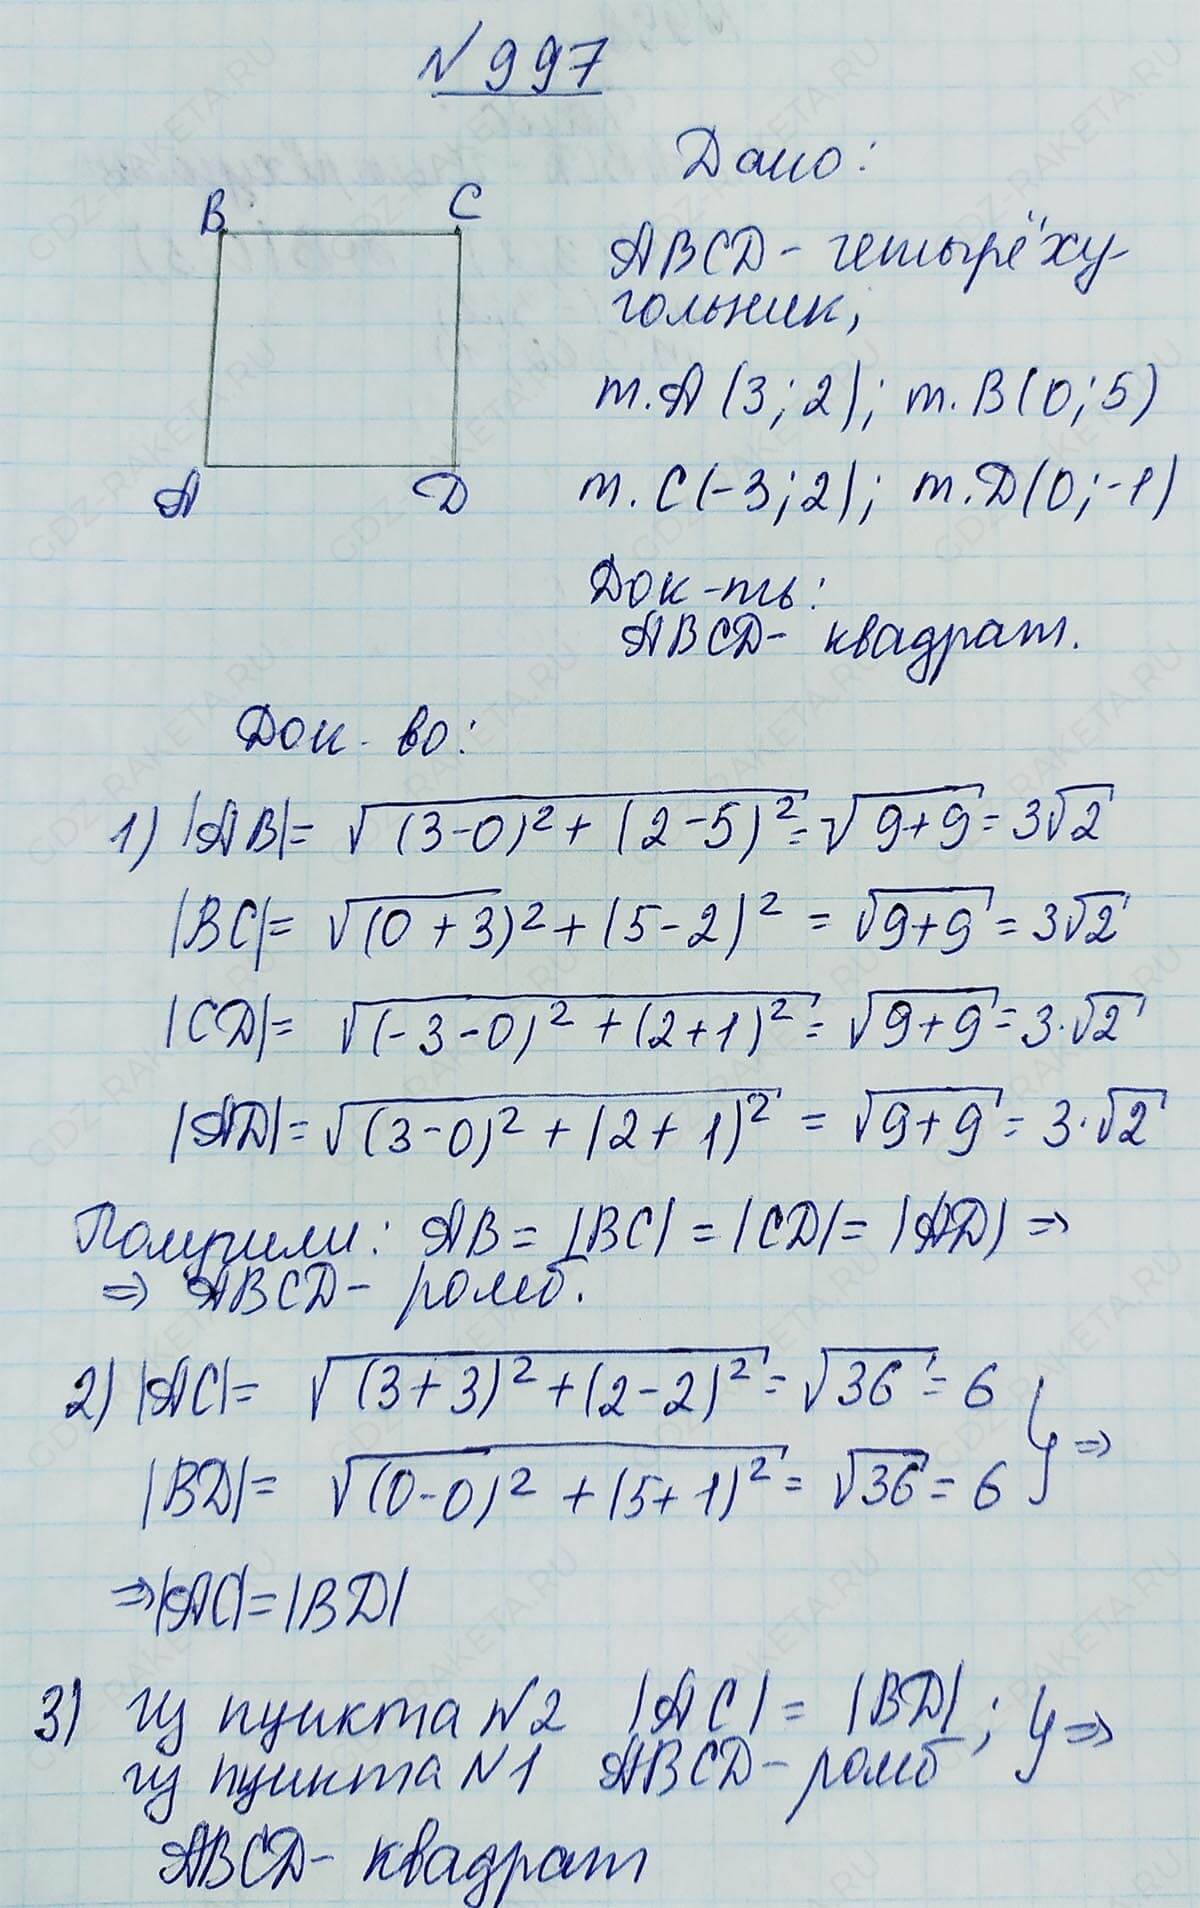 № 997
Дано:
B C
ABCD - четырёху-
гольник,
т. A (3; 2); т. B (0; 5)
A D
т. C (-3; 2); т. D (0; -1)
Док-ть:
ABCD - квадрат.
Док-во:
1) |AB| = √((3-0)² + (2-5)²) = √(9+9) = 3√2
|BC| = √((0+3)² + (5-2)²) = √(9+9) = 3√2
|CD| = √((-3-0)² + (2+1)²) = √(9+9) = 3·√2
|AD| = √((3-0)² + (2+1)²) = √(9+9) = 3·√2
Получили: AB = |BC| = |CD| = |AD| ⇒
⇒ ABCD - ромб.
2) |AC| = √((3+3)² + (2-2)²) = √36 = 6
|BD| = √((0-0)² + (5+1)²) = √36 = 6 } ⇒
⇒ |AC| = |BD|
3) из пункта №2 |AC| = |BD|; } ⇒
из пункта №1 ABCD - ромб
ABCD - квадрат
GDZ-RAKETA.RU